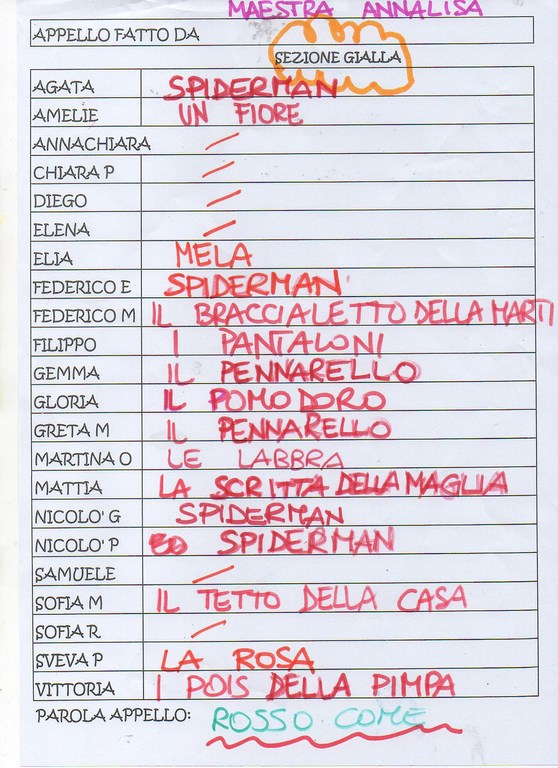 MAESTRA ANNALISA
APPELLO FATTO DA
SEZIONE GIALLA
AGATA SPIDERMAN
AMELIE UN FIORE
ANNACHIARA /
CHIARA P /
DIEGO /
ELENA /
ELIA MELA
FEDERICO E SPIDERMAN
FEDERICO M IL BRACCIALETTO DELLA MARTI
FILIPPO I PANTALONI
GEMMA IL PENNARELLO
GLORIA IL POMODORO
GRETA M IL PENNARELLO
MARTINA O LE LABBRA
MATTIA LA SCRITTA DELLA MAGLIA
NICOLO' G SPIDERMAN
NICOLO' P SPIDERMAN
SAMUELE /
SOFIA M IL TETTO DELLA CASA
SOFIA R /
SVEVA P LA ROSA
VITTORIA I POIS DELLA PIMPA
PAROLA APPELLO: ROSSO COME